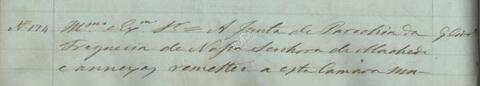 Nº 174 Illmo e Exmo Sr = A Junta de Parochia da
Freguesia de Nossa Senhora de Machede
e annexas, remetteu a esta Camara ma-